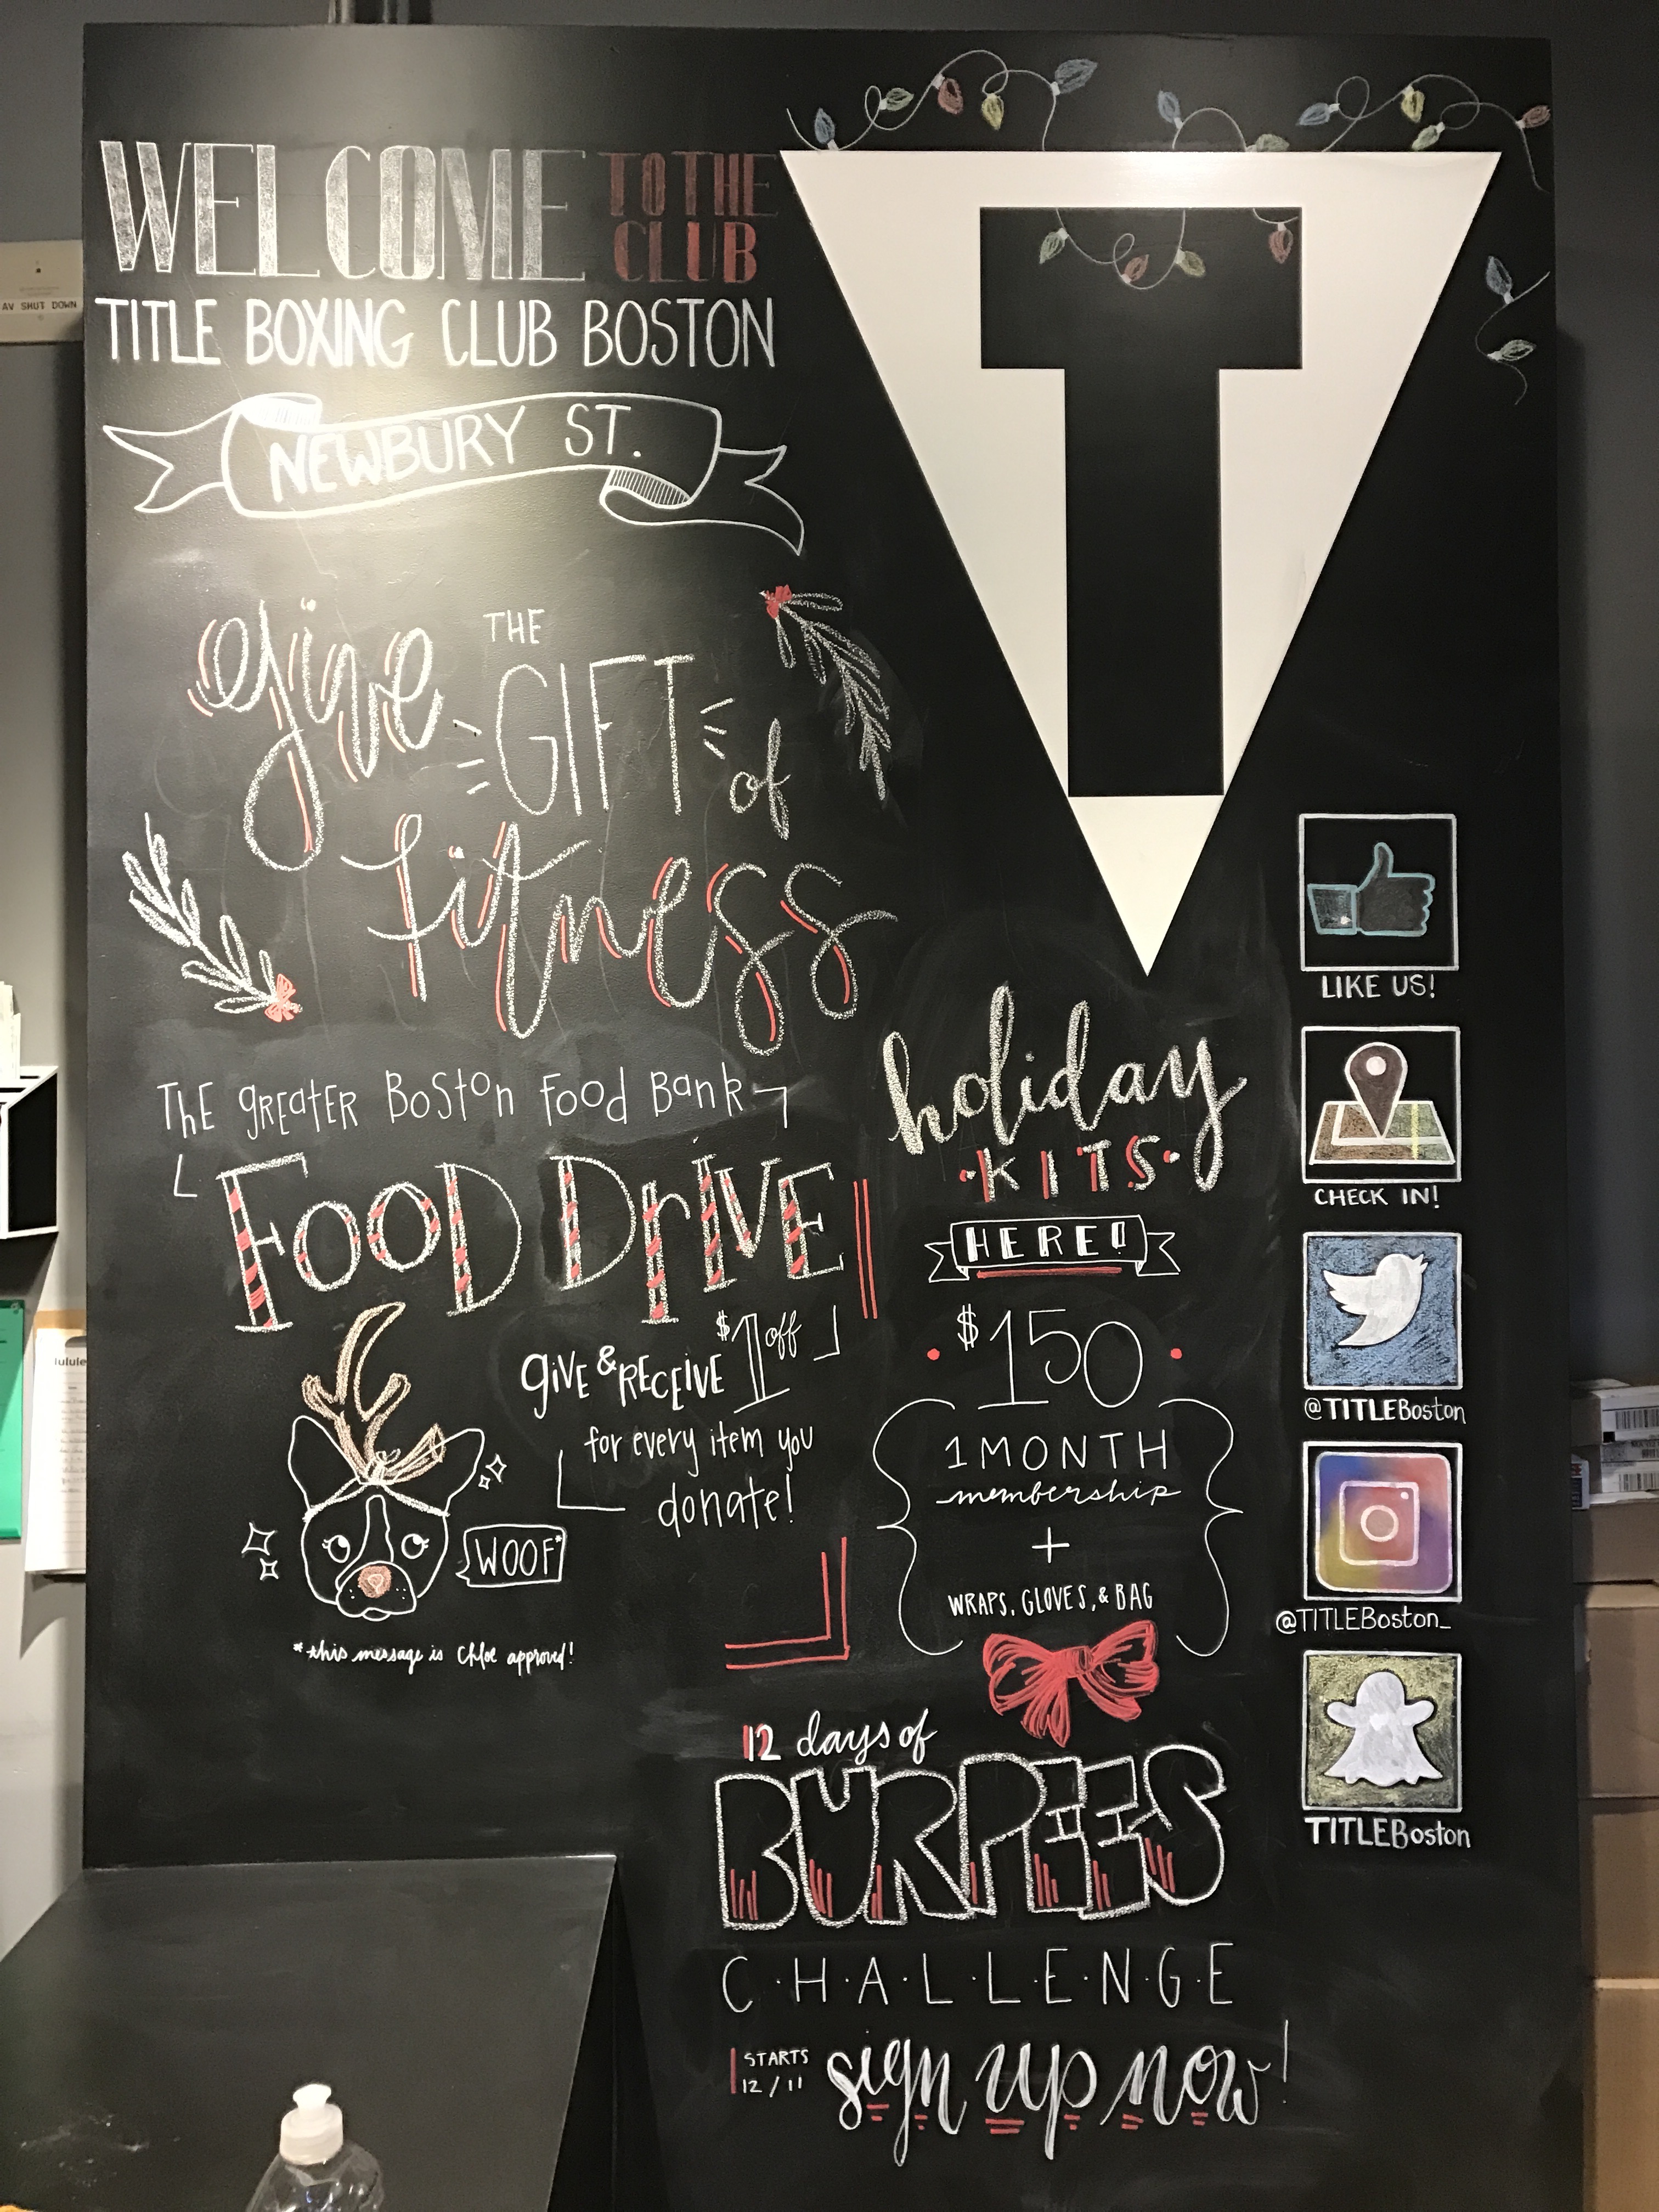 WELCOME TO THE CLUB
TITLE BOXING CLUB BOSTON
NEWBURY ST.
T
AV SHUT DOWN
give THE GIFT of
fitness
THE GREATER BOSTON FOOD BANK
FOOD DRIVE
GIVE & RECEIVE $1 off
for every item you
donate!
WOOF*
*this message is Chloe approved!
lulule
holiday
KITS
HERE!
$150
1 MONTH
membership
+
WRAPS, GLOVES, & BAG
12 days of
BURPEES
C·H·A·L·L·E·N·G·E
STARTS
12/11
sign up now!
LIKE US!
CHECK IN!
@TITLEBoston
@TITLEBoston_
TITLEBoston